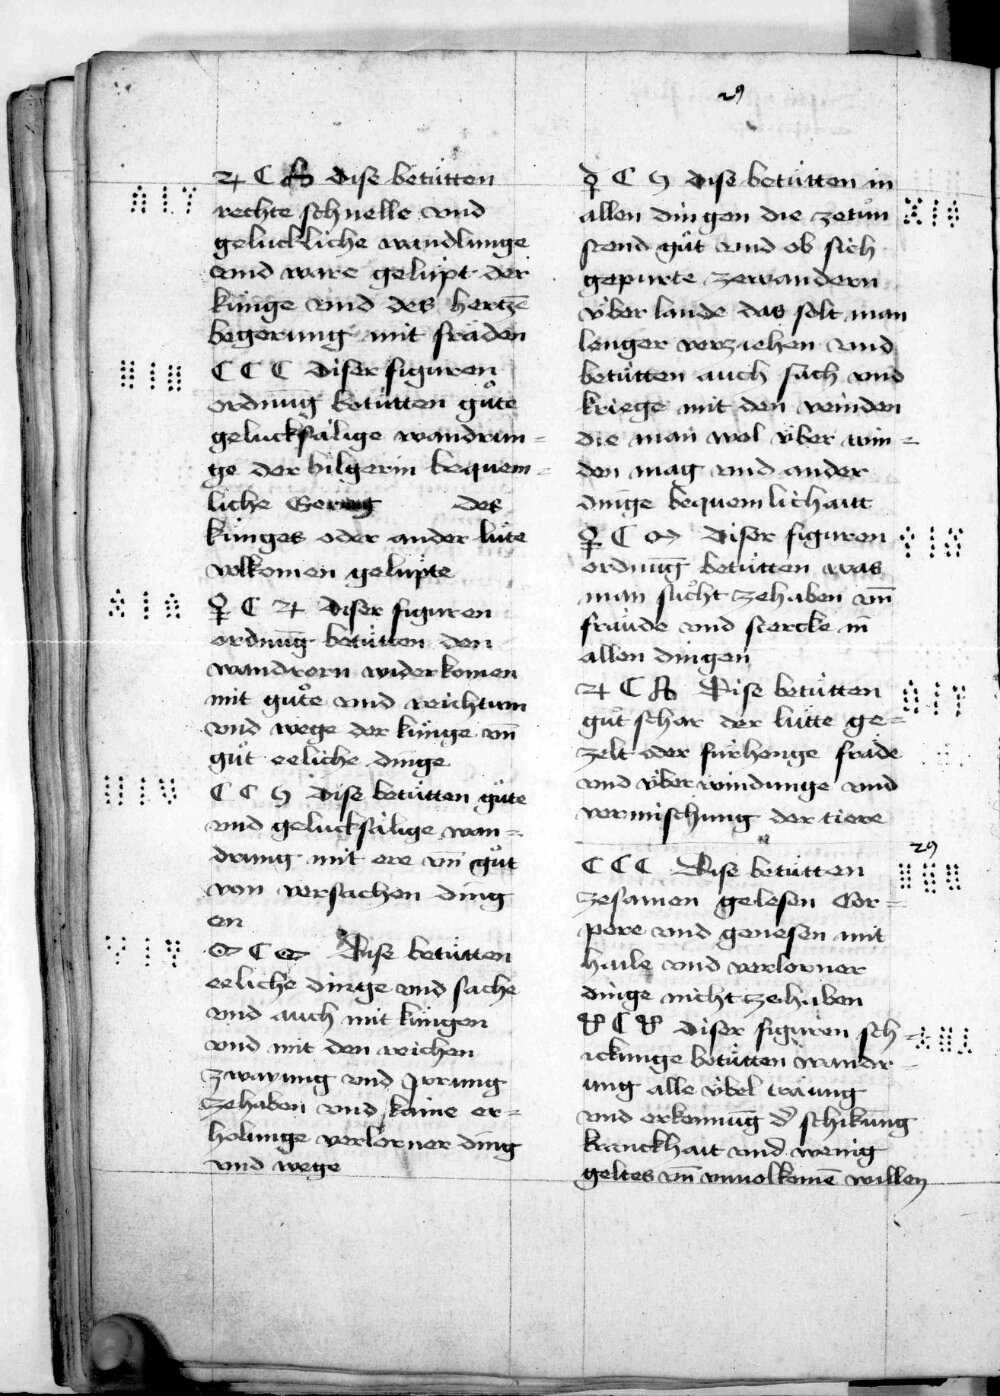 29
♃ ☾ ♄ Dise betütten
rechte schnelle vnd
geluckliche wandlunge
vnd ware gelüpt der
künge vnd des hertzē
begerung mit fräden
☾ ☾ ☾ Diser figuren
ordnūg betütten gůte
gelucksälige wandrun=
ge der bilgerin bequem=
liche des
künges oder ander lüte
volkomen gelüpte
♀ ☾ ♃ Diser figuren
ordnūg betütten den
wandrern widerkomen
mit gůte vnd reichtum
vnd wege der künge vñ
gůt eeliche dinge
☾ ☾ Dise betütten gůte
vnd gelucksälige wan=
drung mit ere vñ gůt
von versachen ding
en
☾ Dise betütten
eeliche dinge vnd sache
vnd auch mit küngen
vnd mit den reichen
zwayung vnd Jrrung
zehaben vnd kaine er=
holunge verlorner ding
vnd wege
☿ ☾ Dise betütten in
allen dingen die zetůn
stend gůt vnd ob sich
gepurte zewandern
über lande das solt man
lenger verziehen vnd
betütten auch sach vnd
kriege mit den veinden
die man wol über win=
den mag vnd ander
dinge bequemlichaitt
♀ ☾ ♂ Diser figuren
ordnūg betütten was
man sůcht zehaben vñ
fräude vnd stercke in
allen dingen
♃ ☾ ♄ Dise betütten
gůt schar der lütte ge=
zelt oder fürhenge fräde
vnd über windunge vnd
vermischung der tiere
29
☾ ☾ ☾ Dise betütten
zesamen gelesen Cor=
pere vnd genesen mit
haile vnd verlorner
dinge nicht zehaben
☾ Diser figuren sch=
ickunge betütten wandr=
ung alle übel träung
vnd erkennūg d' schikūng
kranckhait vnd wenig
geltes vñ vnuolkomē willen